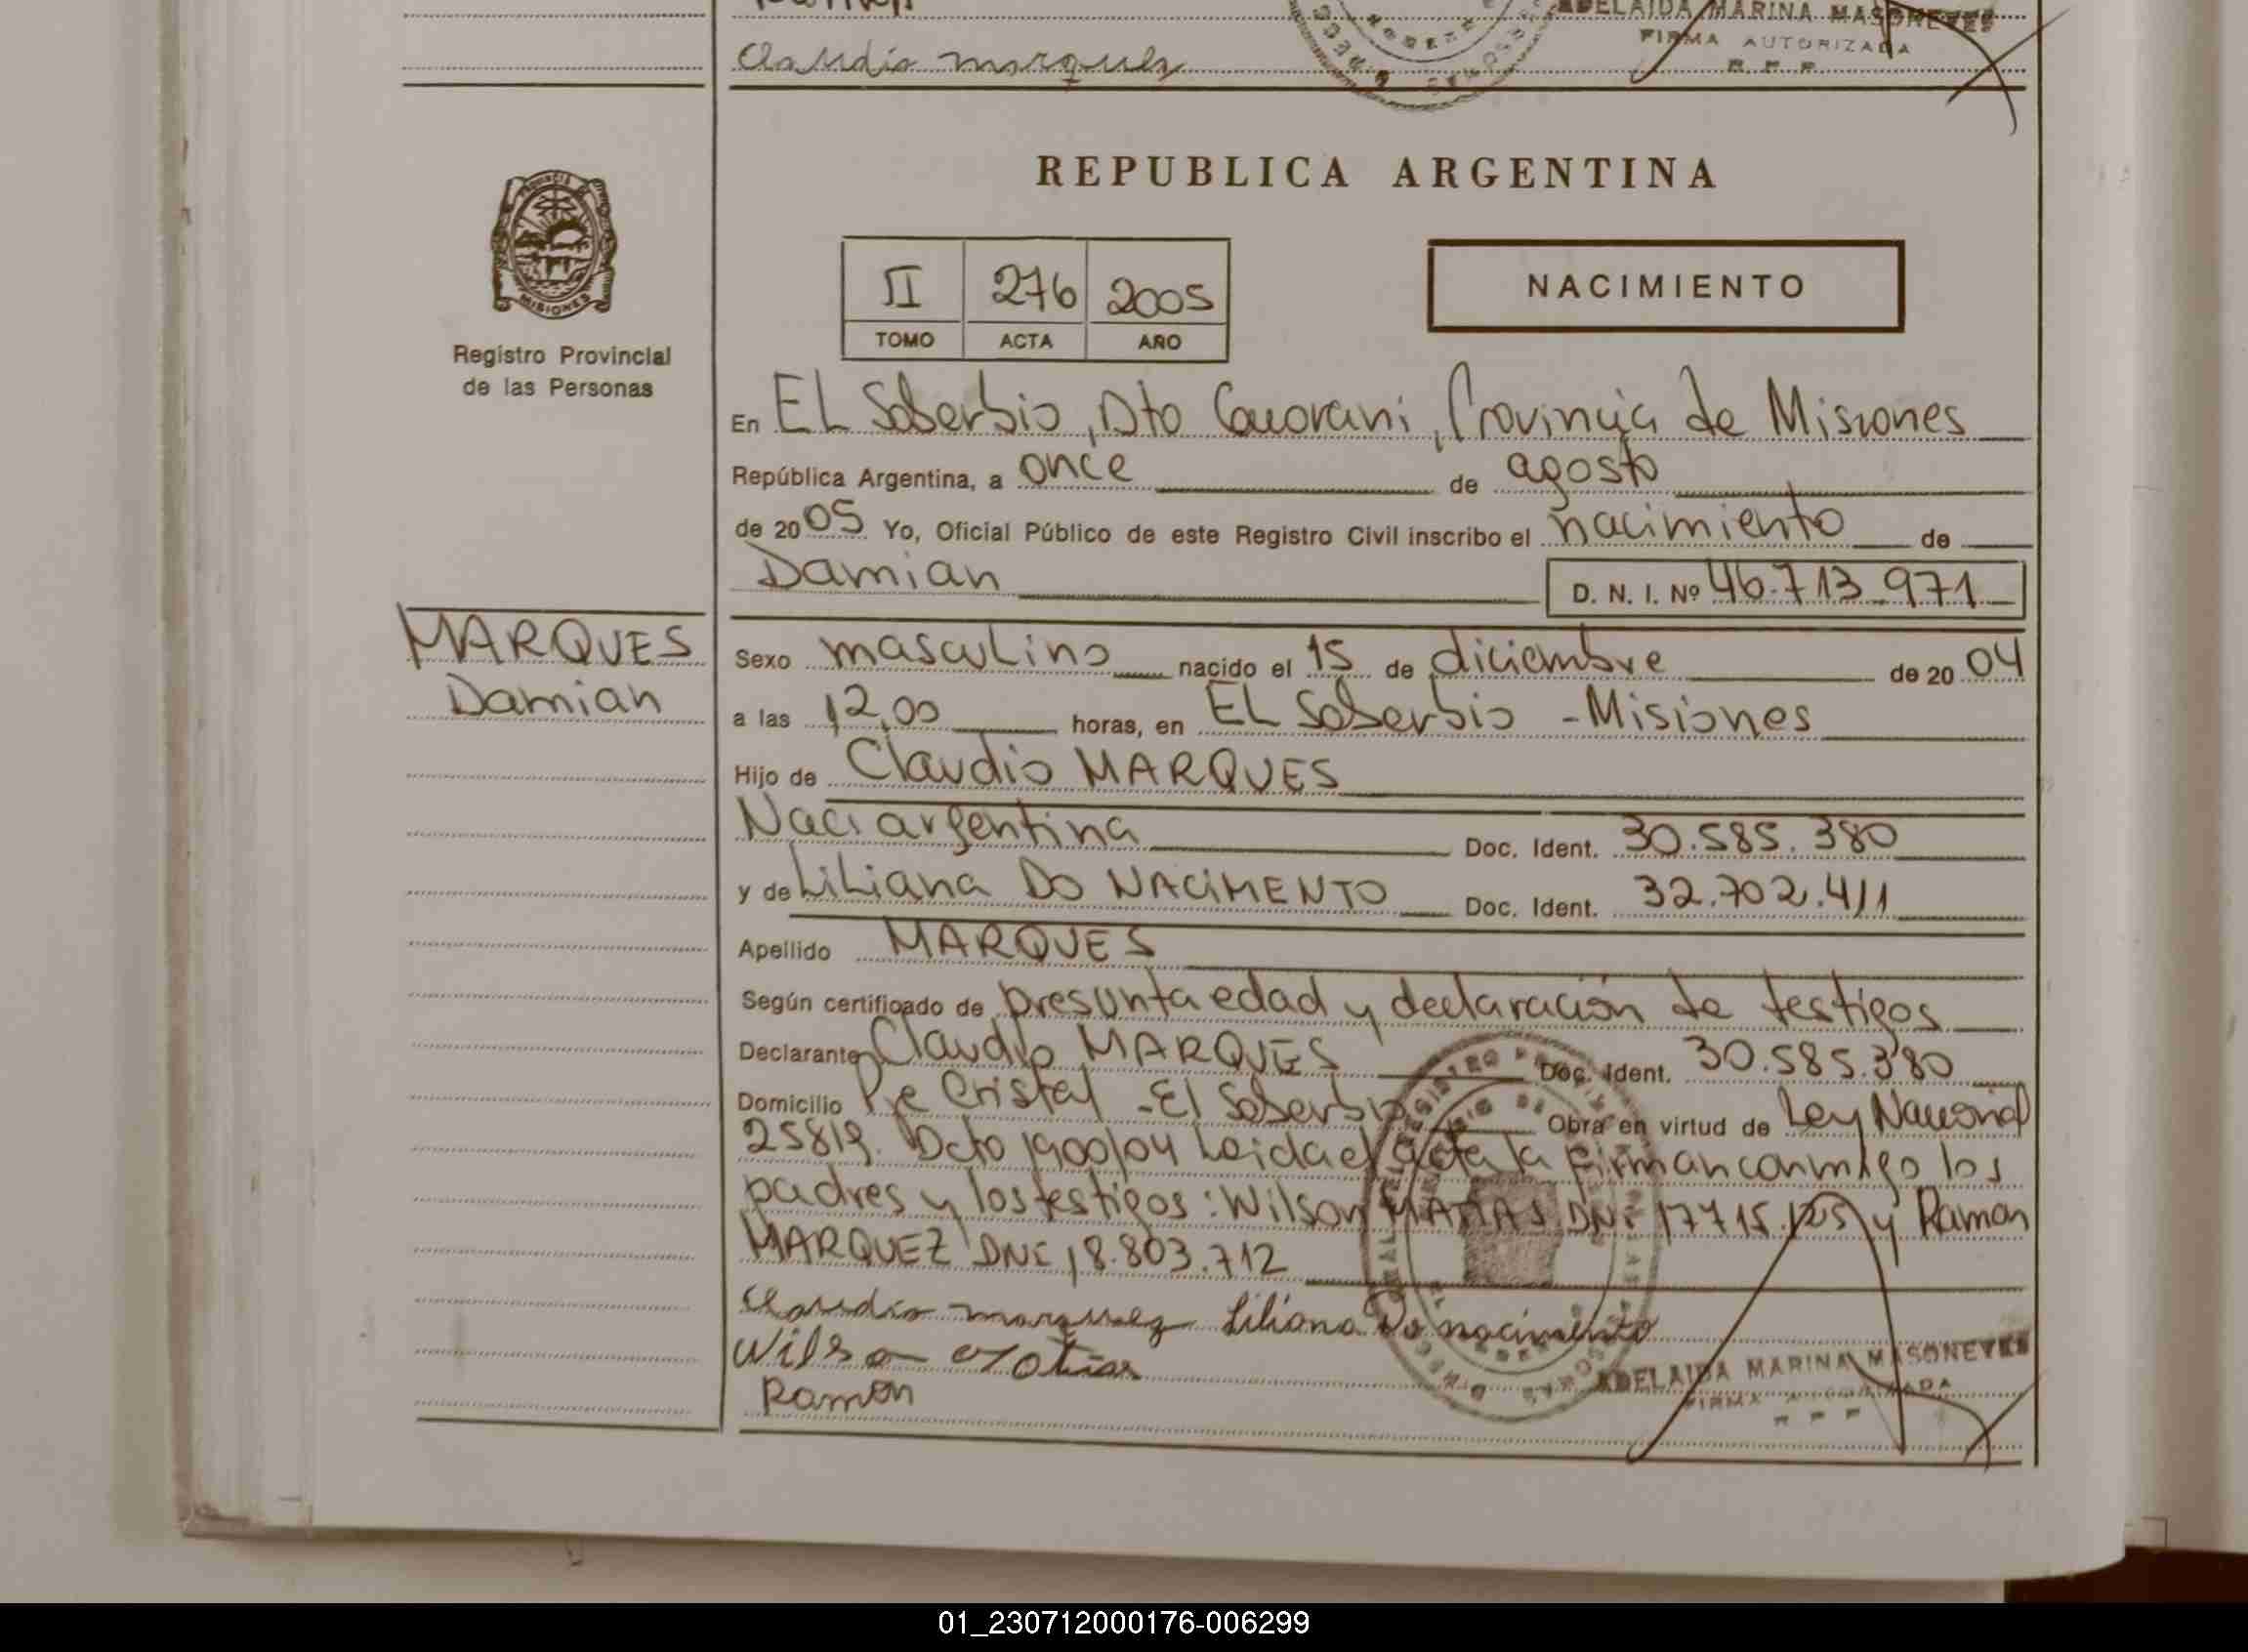 Claudio marquez
ADELAIDA MARINA MASONEVES
FIRMA AUTORIZADA
PROVINCIA
MISIONES
Registro Provincial
de las Personas
MARQUES
Damian
REPUBLICA ARGENTINA
II 276 2005
TOMO ACTA AÑO
NACIMIENTO
En EL Soberbio, Dto Guarani, Provincia de Misiones
República Argentina, a once de agosto
de 2005 Yo, Oficial Público de este Registro Civil inscribo el nacimiento de
Damian D. N. I. Nº 46.713.971
Sexo masculino nacido el 15 de diciembre de 2004
a las 12,00 horas, en EL Soberbio - Misiones
Hijo de Claudio MARQUES
Naci argentina Doc. Ident. 30.585.380
y de Liliana DO NACIMENTO Doc. Ident. 32.702.411
Apellido MARQUES
Según certificado de presunta edad y declaración de testigos
Declarante Claudio MARQUES Doc. Ident. 30.585.380
Domicilio Pje Cristal - El Soberbio Obra en virtud de Ley Nacional
25819. Dcto 1900/04 Leida el acta la firman conmigo los
padres y los testigos: Wilson MATIAS DNI 17715.125 y Ramon
MARQUEZ DNI 18.803.712
Claudio marquez Liliana Do nacimento
Wilson Matias
Ramon
ADELAIDA MARINA MASONEVES
FIRMA AUTORIZADA
01_230712000176-006299